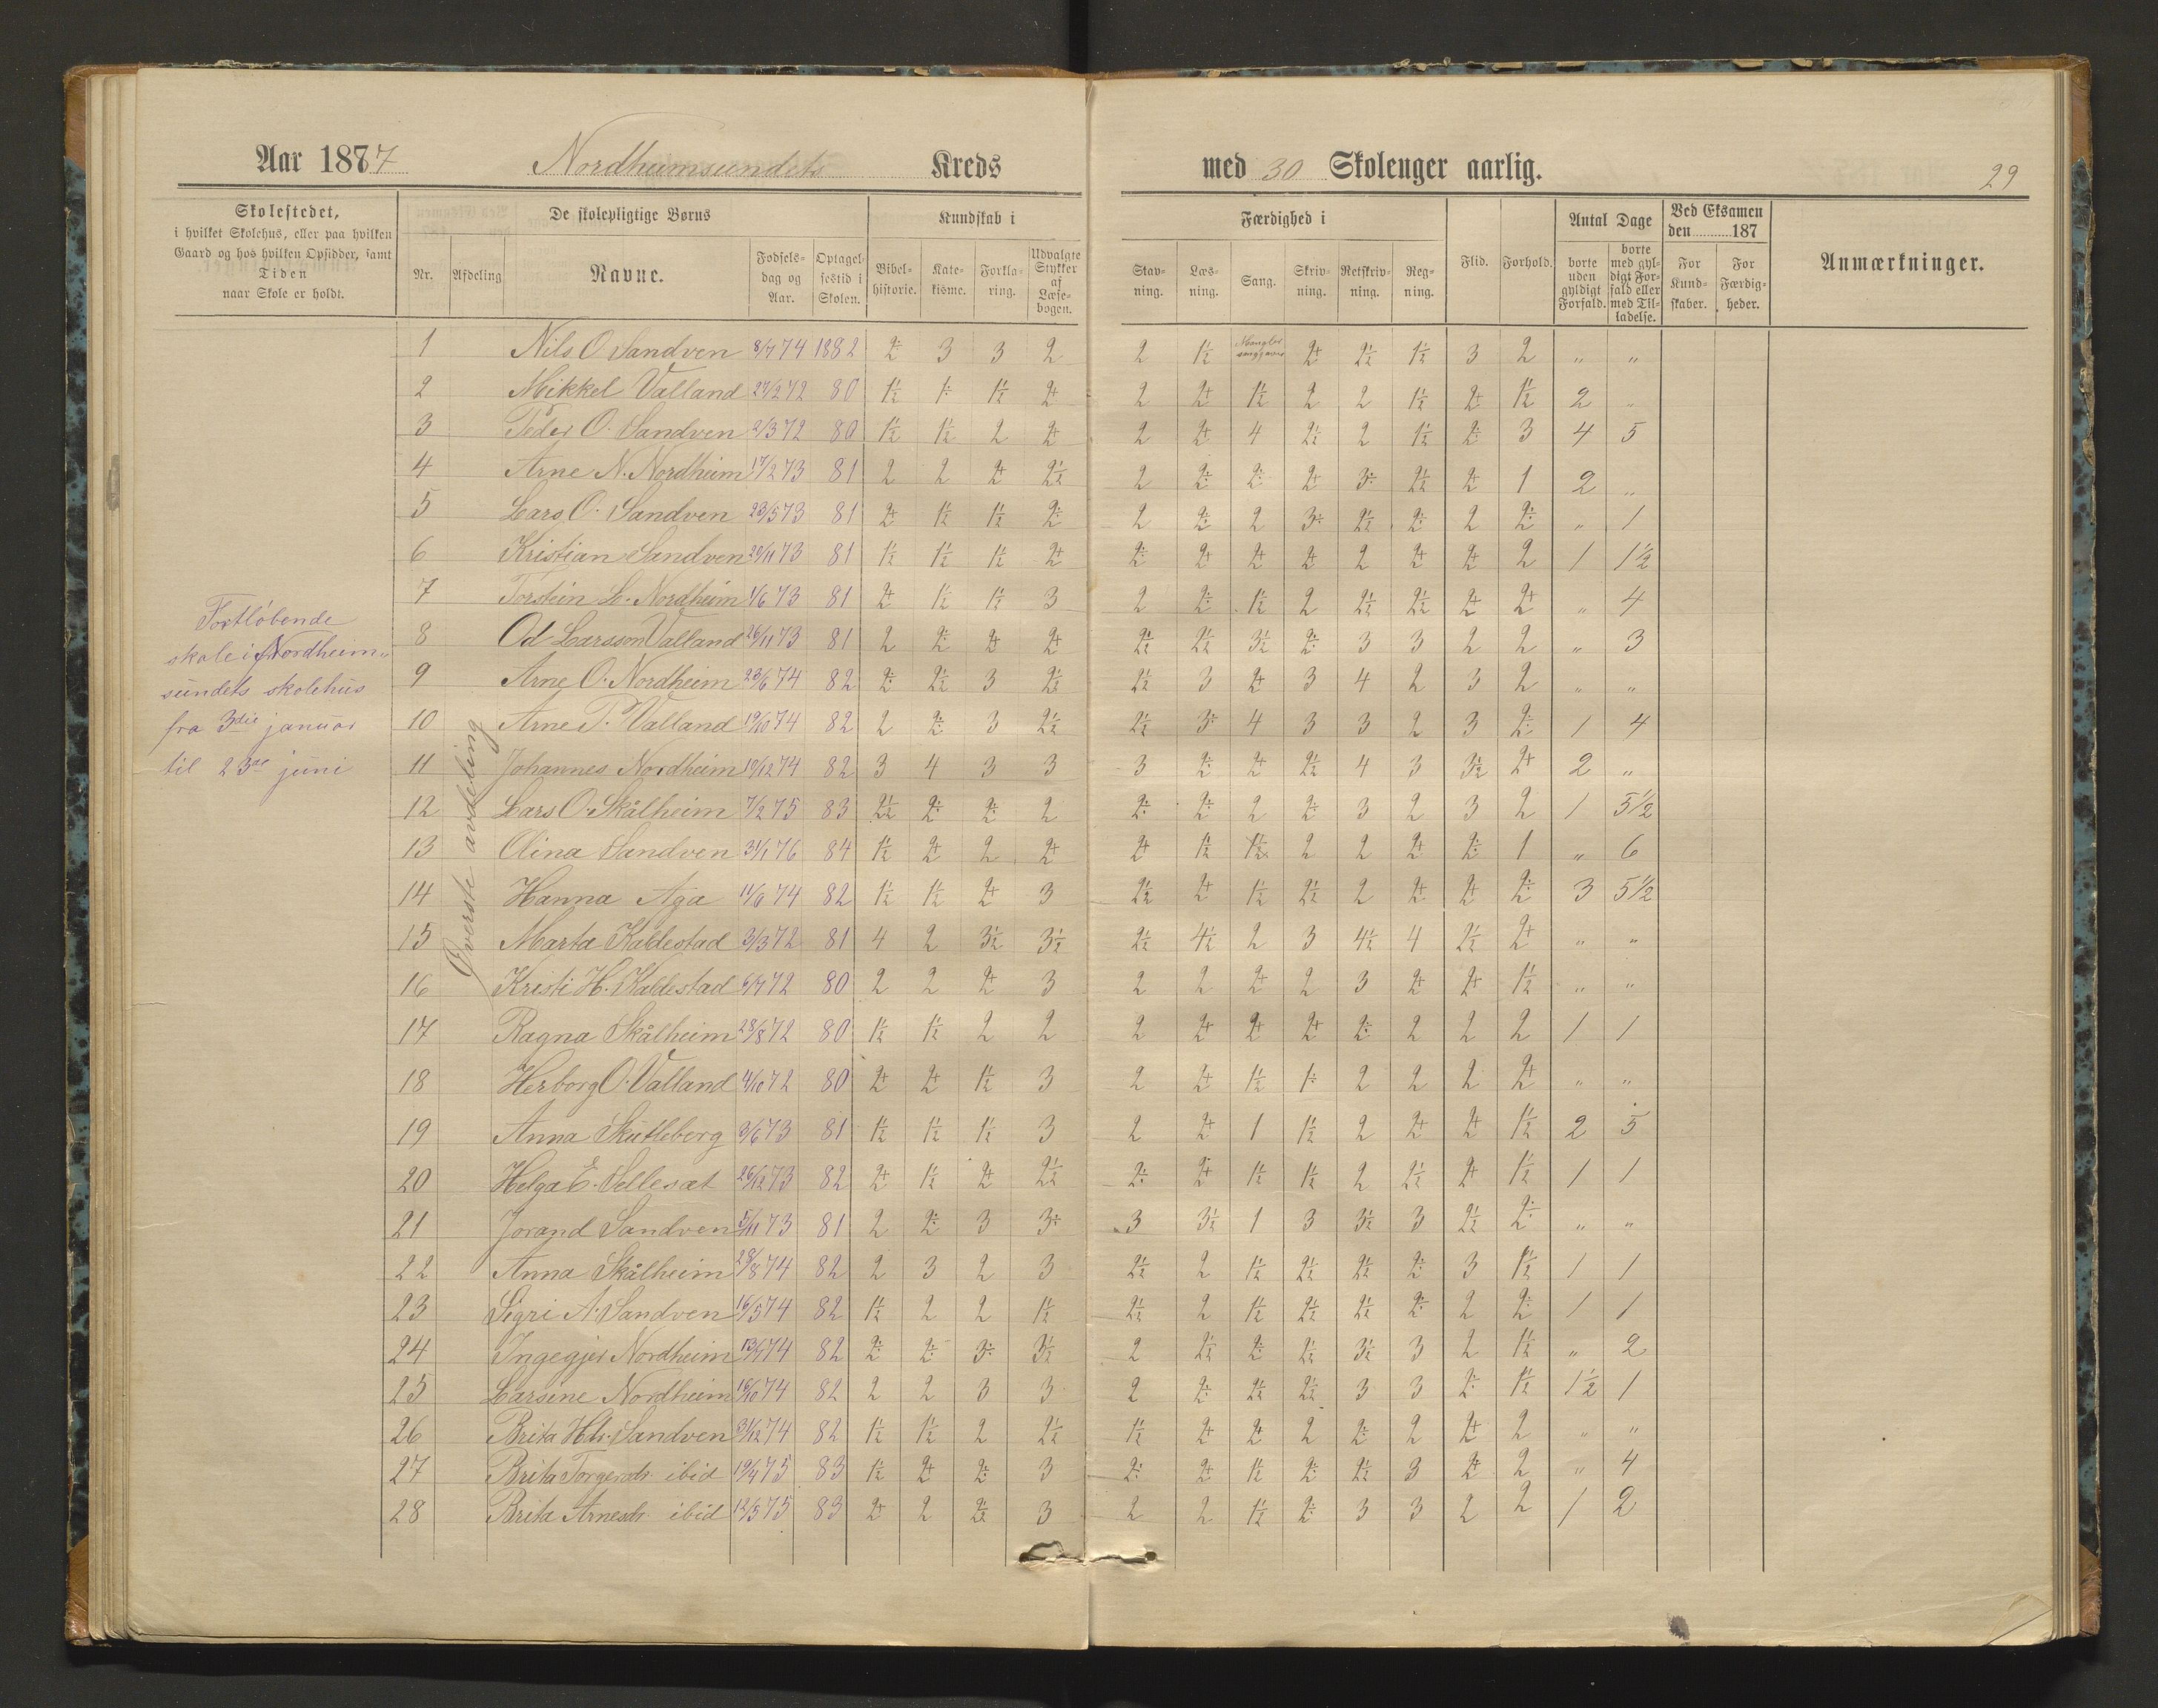 Aar 1887 Nordheimsundets Kreds med 30 Skoleuger aarlig. 29
Skolestedet,
i hvilket Skolehus, eller paa hvilken
Gaard og hos hvilken Opsidder, samt
Tiden
naar Skole er holdt.
De skolepligtige Børns
Nr. Afdeling Navne. Fødselsdag og Aar. Optagelsestid i Skolen.
Kundskab i
Bibelhistorie. Katekisme. Forklaring. Udvalgte Stykker af Læsebogen.
Færdighed i
Stavning. Læsning. Sang. Skrivning. Retskrivning. Regning.
Flid. Forhold.
Antal Dage
borte uden gyldigt Forfald. borte med gyldigt Forfald eller med Tilladelse.
Ved Eksamen
den 187
For Kundskaber. For Færdigheder.
Anmærkninger.
Fortløbende
skole i Nordheim„
sundets skolehus
fra 3die januar
til 23de juni
Øverste avdeling
1 Nils O Sandven 8/7 74 1882 2÷ 3 3 2 2 1½ Mangler sanggaver 2+ 2½ 1½ 3 2 „ „
2 Mikkel Valland 27/2 72 80 1½ 1÷ 1½ 2+ 2 2+ 1½ 2 2 1½ 2+ 1½ 2 „
3 Peder O. Sandven 2/3 72 80 1½ 1½ 2 2+ 2 2+ 4 2½ 2 1½ 2÷ 3 4 5
4 Arne N. Nordheim 17/2 73 81 2 2 2+ 2½ 2 2÷ 2÷ 2+ 3÷ 2½ 2+ 1 2 „
5 Lars O. Sandven 23/5 73 81 2+ 1½ 1½ 2÷ 2 2÷ 2 3÷ 2½ 2÷ 2 2÷ „ 1
6 Kristian Sandven 20/11 73 81 1½ 1½ 1½ 2+ 2÷ 2+ 2+ 2+ 2 2+ 2+ 2 1 1½
7 Torstein L. Nordheim 1/6 73 81 2+ 1½ 1½ 3 2 2÷ 1½ 2 2½ 2½ 2+ 2+ „ 4
8 Od Larsson Valland 26/11 73 81 2 2÷ 2+ 2+ 2½ 2½ 3½ 2÷ 3 3 2 2 „ 3
9 Arne O. Nordheim 23/6 74 82 2÷ 2½ 3 2½ 2½ 3 2+ 3 4 2 3 2 „ „
10 Arne T. Valland 19/10 74 82 2 2÷ 3 2½ 2½ 3÷ 4 3 3 2 3 2÷ 1 4
11 Johannes Nordheim 19/12 74 82 3 4 3 3 3 2÷ 2+ 2½ 4 3 3½ 2+ 2 „
12 Lars O. Skålheim 7/2 75 83 2½ 2÷ 2÷ 2 2÷ 2÷ 2 2÷ 3 2 3 2 1 5½
13 Olina Sandven 31/1 76 84 1½ 2+ 2 2+ 2+ 1½ 1½ 2 2 2+ 2÷ 1 „ 6
14 Hanna Aga 11/6 74 82 1½ 1½ 2+ 3 2½ 2+ 1½ 2½ 2 2+ 2+ 2÷ 3 5½
15 Marta Kaldestad 3/3 72 81 4 2 3½ 3½ 2½ 4½ 2 3 4½ 4 2½ 2+ „ „
16 Kristi H. Kaldestad 6/7 72 80 2 2 2+ 3 2 2 2+ 2 3 2+ 2+ 1½ „ „
17 Ragna Skålheim 28/8 72 80 1½ 1½ 2 2 2 2+ 2+ 2+ 2÷ 2 2 2 1 1
18 Herborg O. Valland 4/10 72 80 2+ 2+ 1½ 3 2 2+ 1½ 1÷ 2 2 2 2+ „ „
19 Anna Skutleberg 3/6 73 81 1½ 1½ 1½ 3 2 2+ 1 1½ 2 2+ 2+ 1½ 2 5
20 Helga E. Sellesæt 26/12 73 82 2+ 1½ 2+ 2½ 2÷ 2+ 1½ 1½ 2 2½ 2+ 1½ 1 1
21 Jorand Sandven 5/11 73 81 2 2÷ 3 3÷ 3 3½ 1 3 3½ 3 2½ 2÷ „ „
22 Anna Skålheim 28/8 74 82 2 3 2 3 2½ 2 1½ 2½ 2½ 2÷ 3 1½ 1 1
23 Sigri A. Sandven 16/5 74 82 1½ 2 2 1½ 2½ 2 1½ 2½ 2½ 2÷ 2 2÷ 1 1
24 Ingegjer Nordheim 74 82 2÷ 2÷ 3÷ 3½ 2 2½ 2÷ 2½ 3½ 3 2 1½ „ 2
25 Larsine Nordheim 16/10 74 82 2 2 3 3 2 2÷ 2½ 2½ 3 3 2÷ 1½ 1½ 1
26 Brita Hdr. Sandven 31/12 74 82 1½ 1½ 2 2½ 1½ 2+ 2+ 2 2÷ 2 2+ 2 „ „
27 Brita Torgersdr. ibid 19/4 75 83 1½ 2+ 2÷ 3 2÷ 2+ 1½ 2÷ 2½ 3 2+ 2 „ 4
28 Brita Arnesdr. ibid 12/5 75 83 2+ 2 2½ 3 2 2 1½ 2÷ 3 3 2 2 1 2